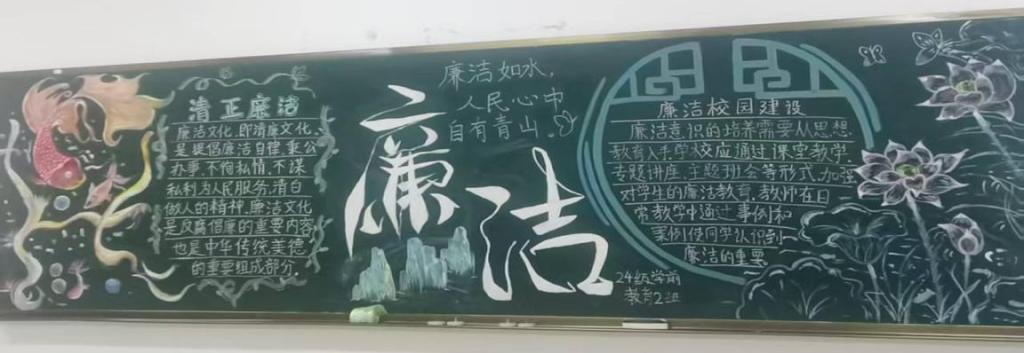 清正廉洁
廉洁文化,即清廉文化,
是提倡廉洁自律,秉公
办事,不徇私情,不谋
私利,为人民服务,清白
做人的精神,廉洁文化
是反腐倡廉的重要内容
也是中华传统美德
的重要组成部分。
廉洁如水,
人民心中
自有青山。
廉
洁
24级学前
教育2班
廉洁校园建设
廉洁意识的培养需要从思想
教育入手,学校应通过课堂教学,
专题讲座、主题班会等形式,加强
对学生的廉洁教育,教师在日
常教学中通过事例和
案例使同学认识到
廉洁的重要